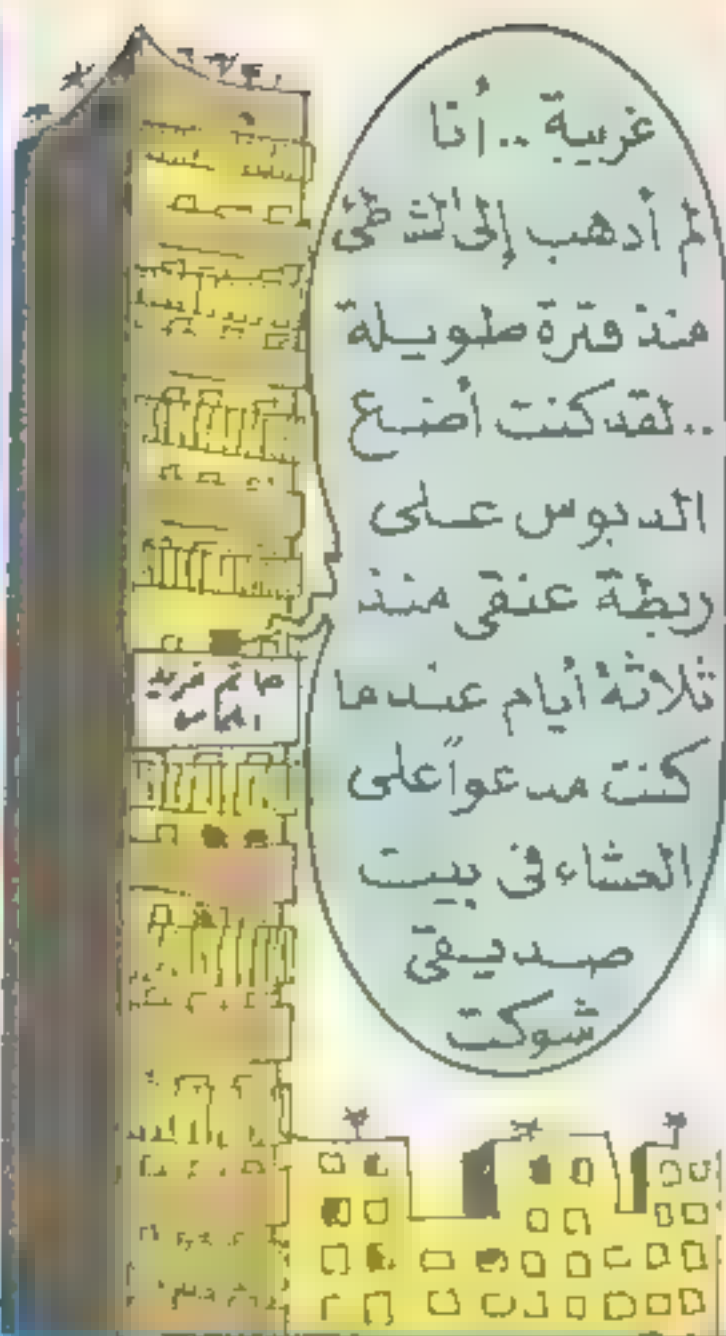 غريبة .. أنا
لم أذهب إلى الشاطئ
منذ فترة طويلة
.. لقد كنت أضع
الدبوس على
ربطة عنقي منذ
ثلاثة أيام عندما
كنت مدعواً على
العشاء في بيت
صديقي
شوكت
فريد